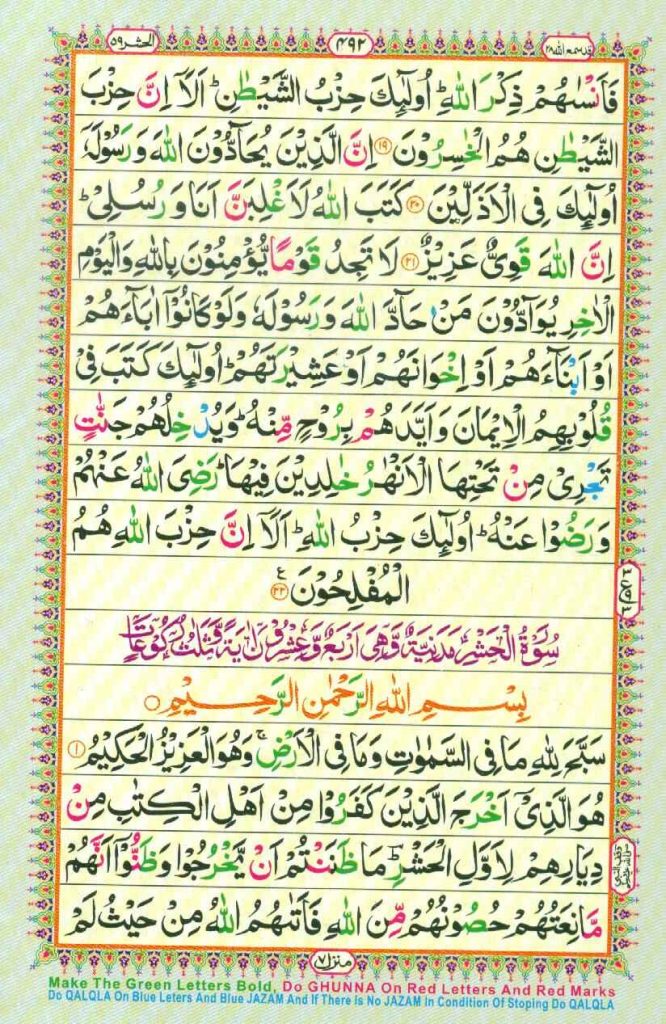 قد سمع الله ۲۸
۴۹۲
الحشر ۵۹
فَاَنْسٰىهُمْ ذِكْرَ اللّٰهِ ؕ اُولٰٓئِكَ حِزْبُ الشَّيْطٰنِ ؕ اَلَاۤ اِنَّ حِزْبَ
الشَّيْطٰنِ هُمُ الْخٰسِرُوْنَ ﴿۱۹﴾ اِنَّ الَّذِيْنَ يُحَآدُّوْنَ اللّٰهَ وَرَسُوْلَهٗۤ
اُولٰٓئِكَ فِى الْاَذَلِّيْنَ ﴿۲۰﴾ كَتَبَ اللّٰهُ لَاَغْلِبَنَّ اَنَا وَرُسُلِىْ ؕ
اِنَّ اللّٰهَ قَوِىٌّ عَزِيْزٌ ﴿۲۱﴾ لَا تَجِدُ قَوْمًا يُّؤْمِنُوْنَ بِاللّٰهِ وَالْيَوْمِ
الْاٰخِرِ يُوَآدُّوْنَ مَنْ حَآدَّ اللّٰهَ وَرَسُوْلَهٗ وَلَوْ كَانُوْۤا اٰبَآءَهُمْ
اَوْ اَبْنَآءَهُمْ اَوْ اِخْوَانَهُمْ اَوْ عَشِيْرَتَهُمْ ؕ اُولٰٓئِكَ كَتَبَ فِىْ
قُلُوْبِهِمُ الْاِيْمَانَ وَاَيَّدَهُمْ بِرُوْحٍ مِّنْهُ ؕ وَيُدْخِلُهُمْ جَنّٰتٍ
تَجْرِىْ مِنْ تَحْتِهَا الْاَنْهٰرُ خٰلِدِيْنَ فِيْهَا ؕ رَضِىَ اللّٰهُ عَنْهُمْ
وَرَضُوْا عَنْهُ ؕ اُولٰٓئِكَ حِزْبُ اللّٰهِ ؕ اَلَاۤ اِنَّ حِزْبَ اللّٰهِ هُمُ
الْمُفْلِحُوْنَ ﴿۲۲﴾ ع
سُوْرَةُ الْحَشْرِ مَدَنِيَّةٌ وَّهِىَ اَرْبَعٌ وَّعِشْرُوْنَ اٰيَةً وَّثَلٰثُ رُكُوْعَاتٍ
بِسْمِ اللّٰهِ الرَّحْمٰنِ الرَّحِيْمِ
سَبَّحَ لِلّٰهِ مَا فِى السَّمٰوٰتِ وَمَا فِى الْاَرْضِ ۚ وَهُوَ الْعَزِيْزُ الْحَكِيْمُ ﴿۱﴾
هُوَ الَّذِىْۤ اَخْرَجَ الَّذِيْنَ كَفَرُوْا مِنْ اَهْلِ الْكِتٰبِ مِنْ
دِيَارِهِمْ لِاَوَّلِ الْحَشْرِ ؕ مَا ظَنَنْتُمْ اَنْ يَّخْرُجُوْا وَظَنُّوْۤا اَنَّهُمْ
مَّانِعَتُهُمْ حُصُوْنُهُمْ مِّنَ اللّٰهِ فَاَتٰىهُمُ اللّٰهُ مِنْ حَيْثُ لَمْ
منزل ۷
Make The Green Letters Bold, Do GHUNNA On Red Letters And Red Marks
Do QALQLA On Blue Leters And Blue JAZAM And If There Is No JAZAM In Condition Of Stoping Do QALQLA